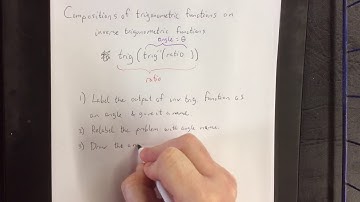 Compositions of trigonometric functions on
inverse trigonometric functions
angle = θ
trig (trig⁻¹(ratio))
ratio
1) Label the output of inv trig function as
an angle & give it a name
2) Relabel the problem with angle name
3) Draw the a